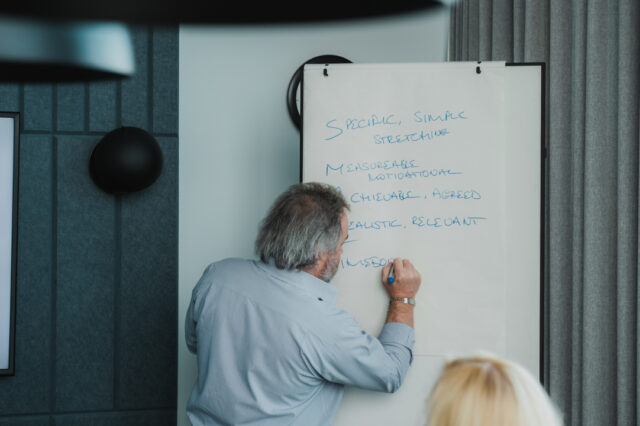 SPECIFIC, SIMPLE
STRETCHING
MEASUREABLE
MOTIVATIONAL
CHIEVABLE, AGREED
EALISTIC, RELEVANT
IMEBO